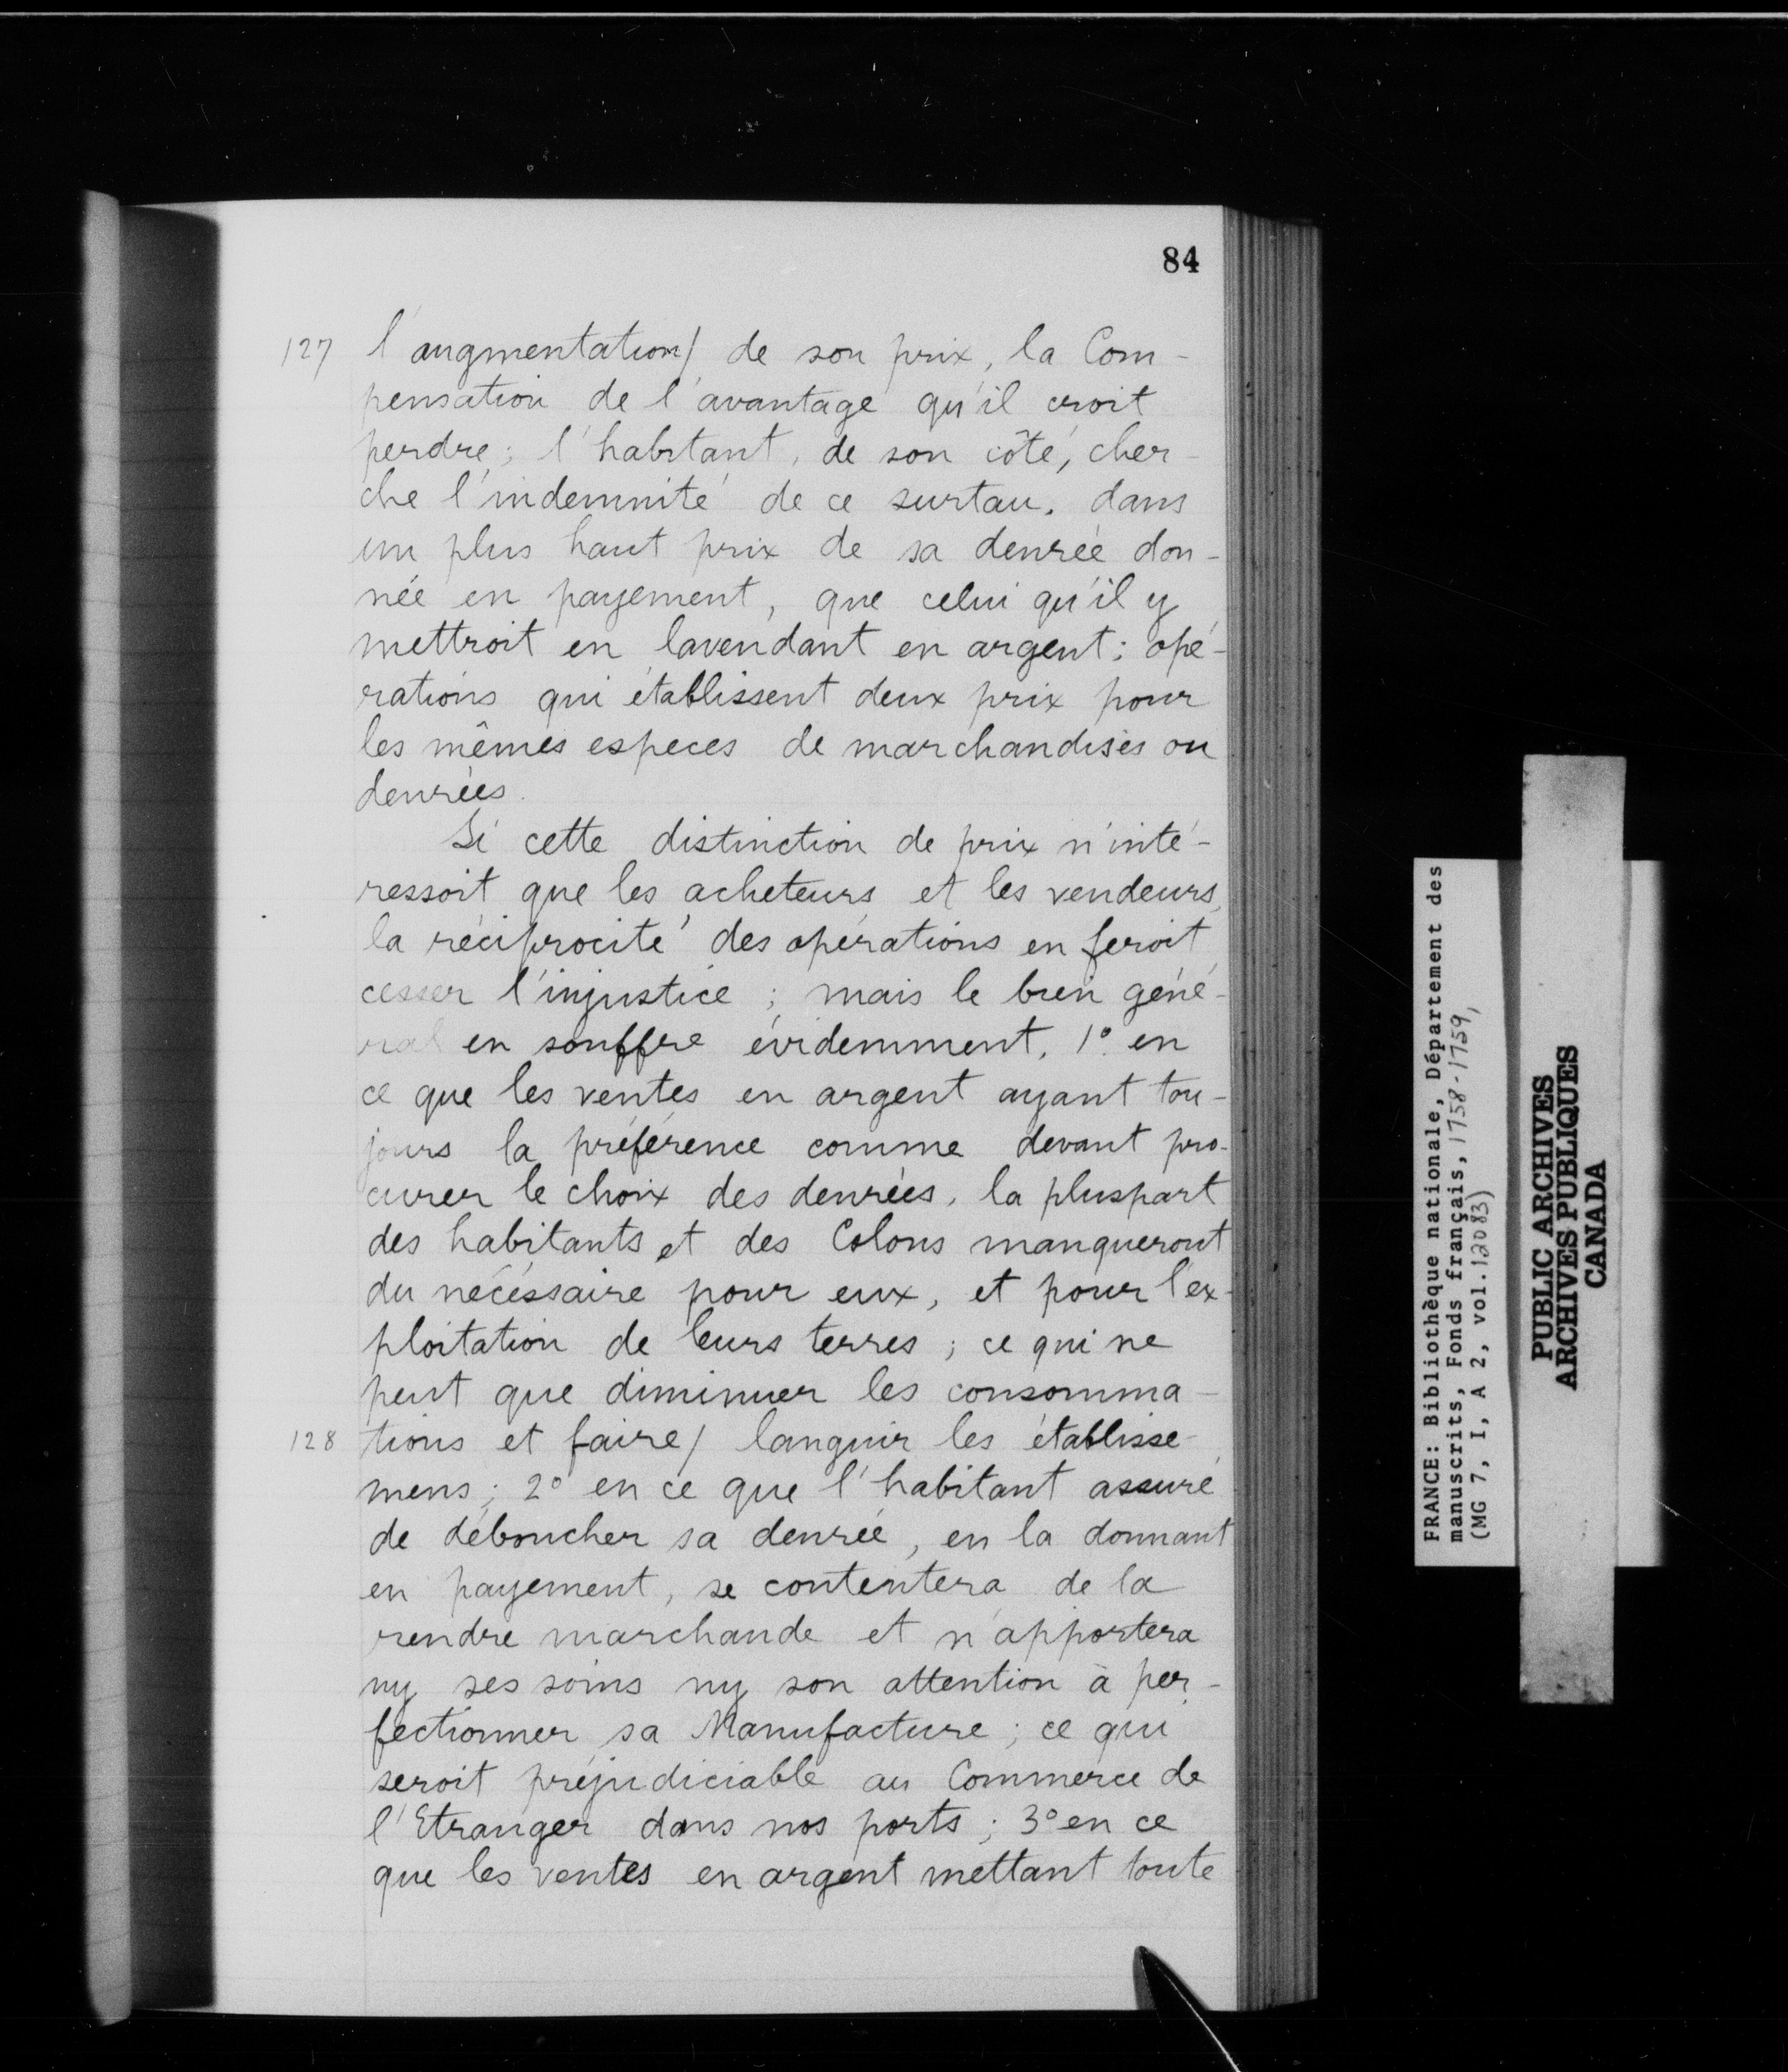 84
127 l'augmentation/ de son prix, la Com-
pensation de l'avantage qu'il croit
perdre; l'habitant, de son côté, cher-
che l'indemnité de ce surtau, dans
un plus haut prix de sa denrée don-
née en payement, que celui qu'il y
mettroit en lavendant en argent; opé-
rations qui établissent deux prix pour
les mêmes especes de marchandises ou
denrées.
Si cette distinction de prix n'inté-
ressoit que les acheteurs et les vendeurs,
la réciprocité des opérations en feroit
cesser l'injustice; mais le bien géné-
ral en souffre évidemment, 1º. en
ce que les ventes en argent ayant tou-
jours la préférence comme devant pro-
curer le choix des denrées, la pluspart
des habitants et des Colons manqueront
du nécéssaire pour eux, et pour l'ex-
ploitation de leurs terres; ce qui ne
peut que diminuer les consomma-
128 tions et faire/ languir les établisse-
mens; 2º en ce que l'habitant assuré
de déboucher sa denrée, en la donnant
en payement, se contentera de la
rendre marchande et n'apportera
ny ses soins ny son attention à per-
fectionner sa Manufacture; ce qui
seroit préjudiciable au Commerce de
l'Etranger dans nos ports; 3º en ce
que les ventes en argent mettant toute
FRANCE: Bibliothèque nationale, Département des
manuscrits, Fonds français, 1758-1759,
(MG 7, I, A 2, vol. 12083)
PUBLIC ARCHIVES
ARCHIVES PUBLIQUES
CANADA